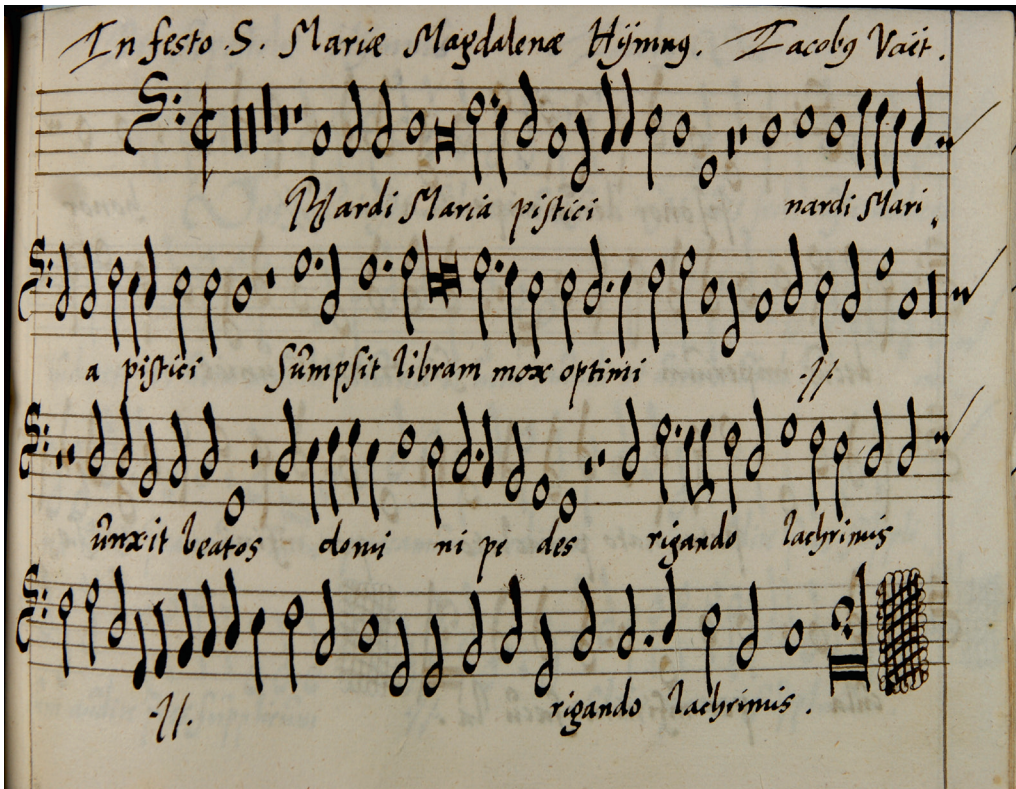 In festo S. Mariæ Magdalenæ Hÿmnꝯ. Iacobꝯ Vaët.
Nardi Maria pistici nardi Mari
a pistici Sumpsit libram mox optimi .//.
ûnxit beatos domi ni pe des rigando lachrimis
.//. rigando lachrimis .